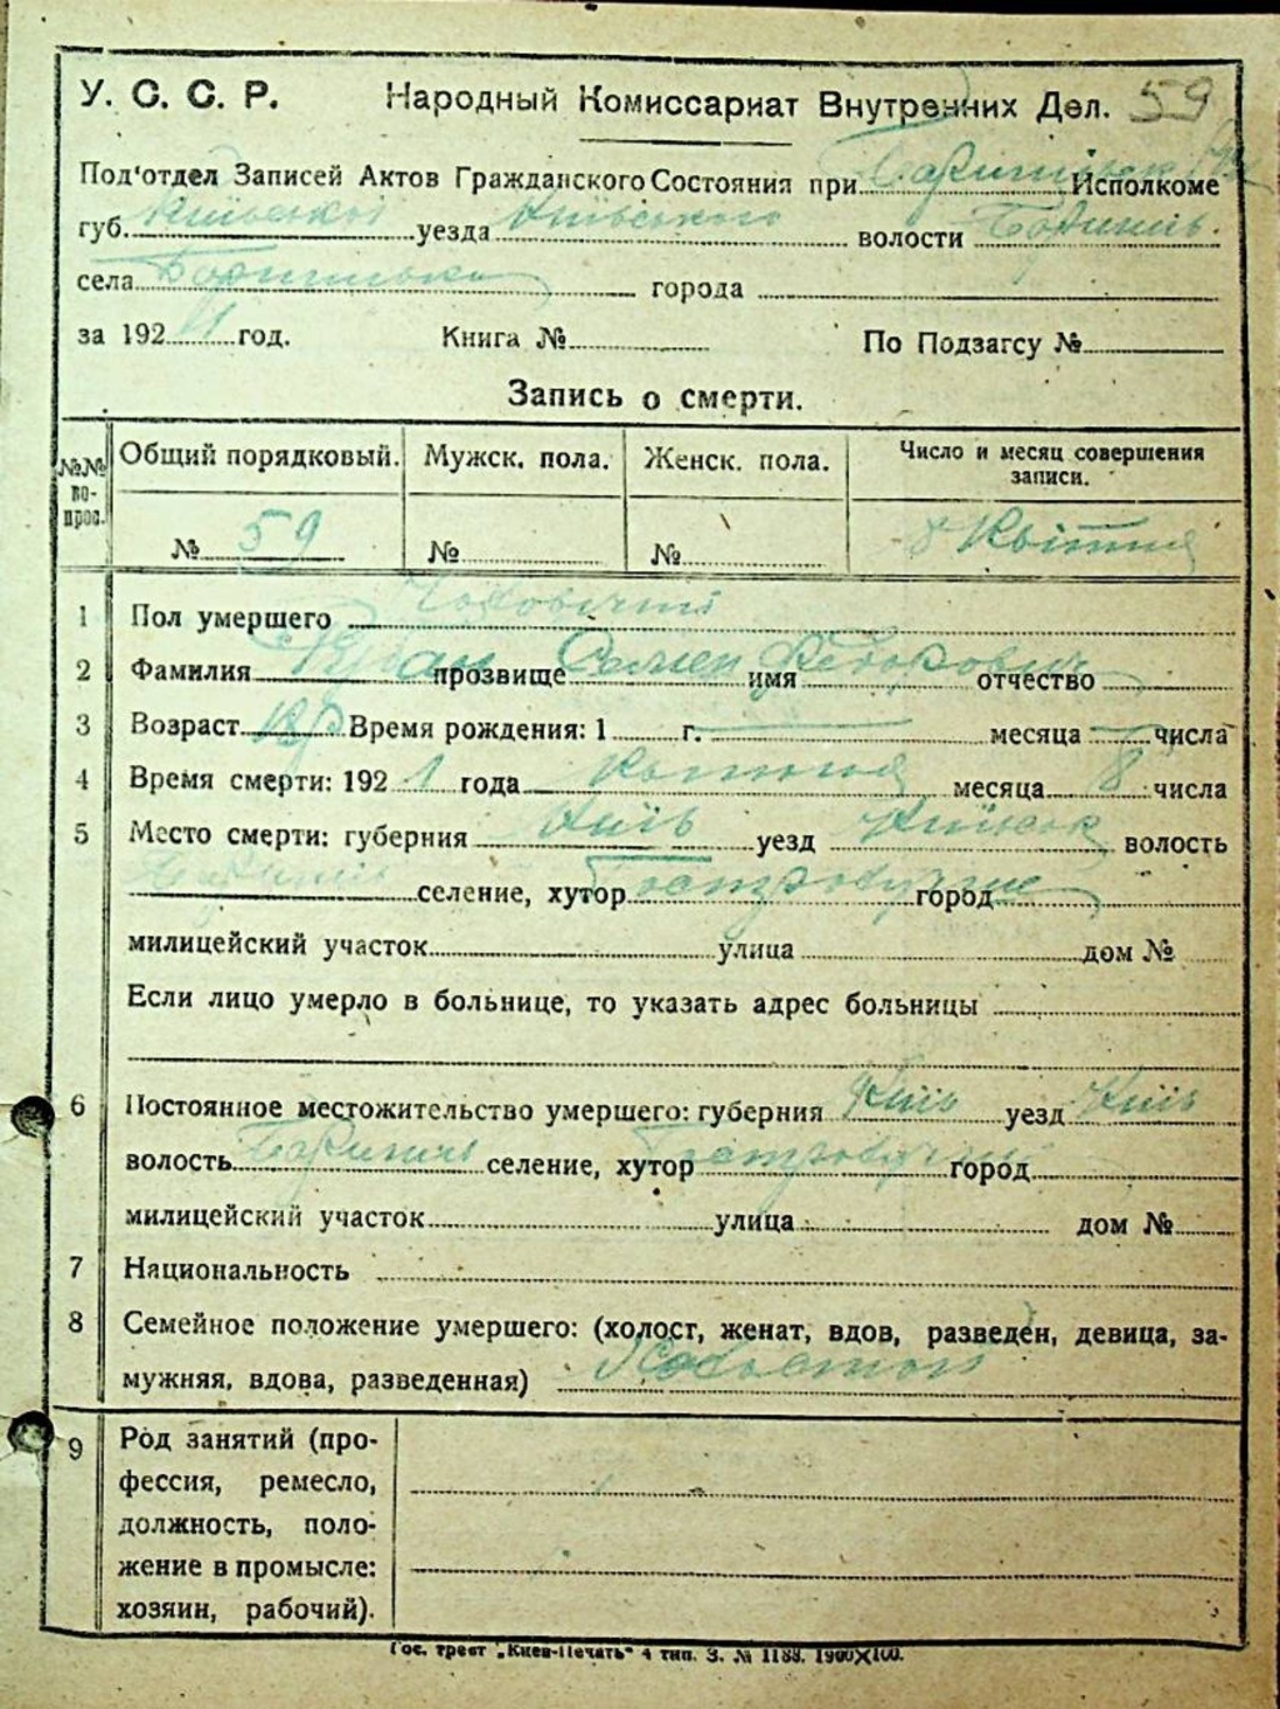 У. С. С. Р. Народный Комиссариат Внутренних Дел. 59
Под'отдел Записей Актов Гражданского Состояния при Исполкоме
губ. Київської уезда Київського волости Боришпіль
села города
за 192 1 год. Книга № По Подзагсу №
Запись о смерти.
№№ вопрос. Общий порядковый. Мужск. пола. Женск. пола. Число и месяц совершения записи.
№ 59 № № 8 Квітня
1 Пол умершего Чоловичий
2 Фамилия прозвище Семен имя Федорович отчество
3 Возраст Время рождения: 1 г. месяца числа
4 Время смерти: 192 1 года Квітня месяца 8 числа
5 Место смерти: губерния Київ уезд волость
селение, хутор город
милицейский участок улица дом №
Если лицо умерло в больнице, то указать адрес больницы
6 Постоянное местожительство умершего: губерния Київ уезд Київ
волость селение, хутор город
милицейский участок улица дом №
7 Национальность
8 Семейное положение умершего: (холост, женат, вдов, разведен, девица, за-
мужняя, вдова, разведенная)
9 Род занятий (про-
фессия, ремесло,
должность, поло-
жение в промысле:
хозяин, рабочий).
Гос. трест „Киев-Печать" 4 тип. З. № 1188. 1900X100.